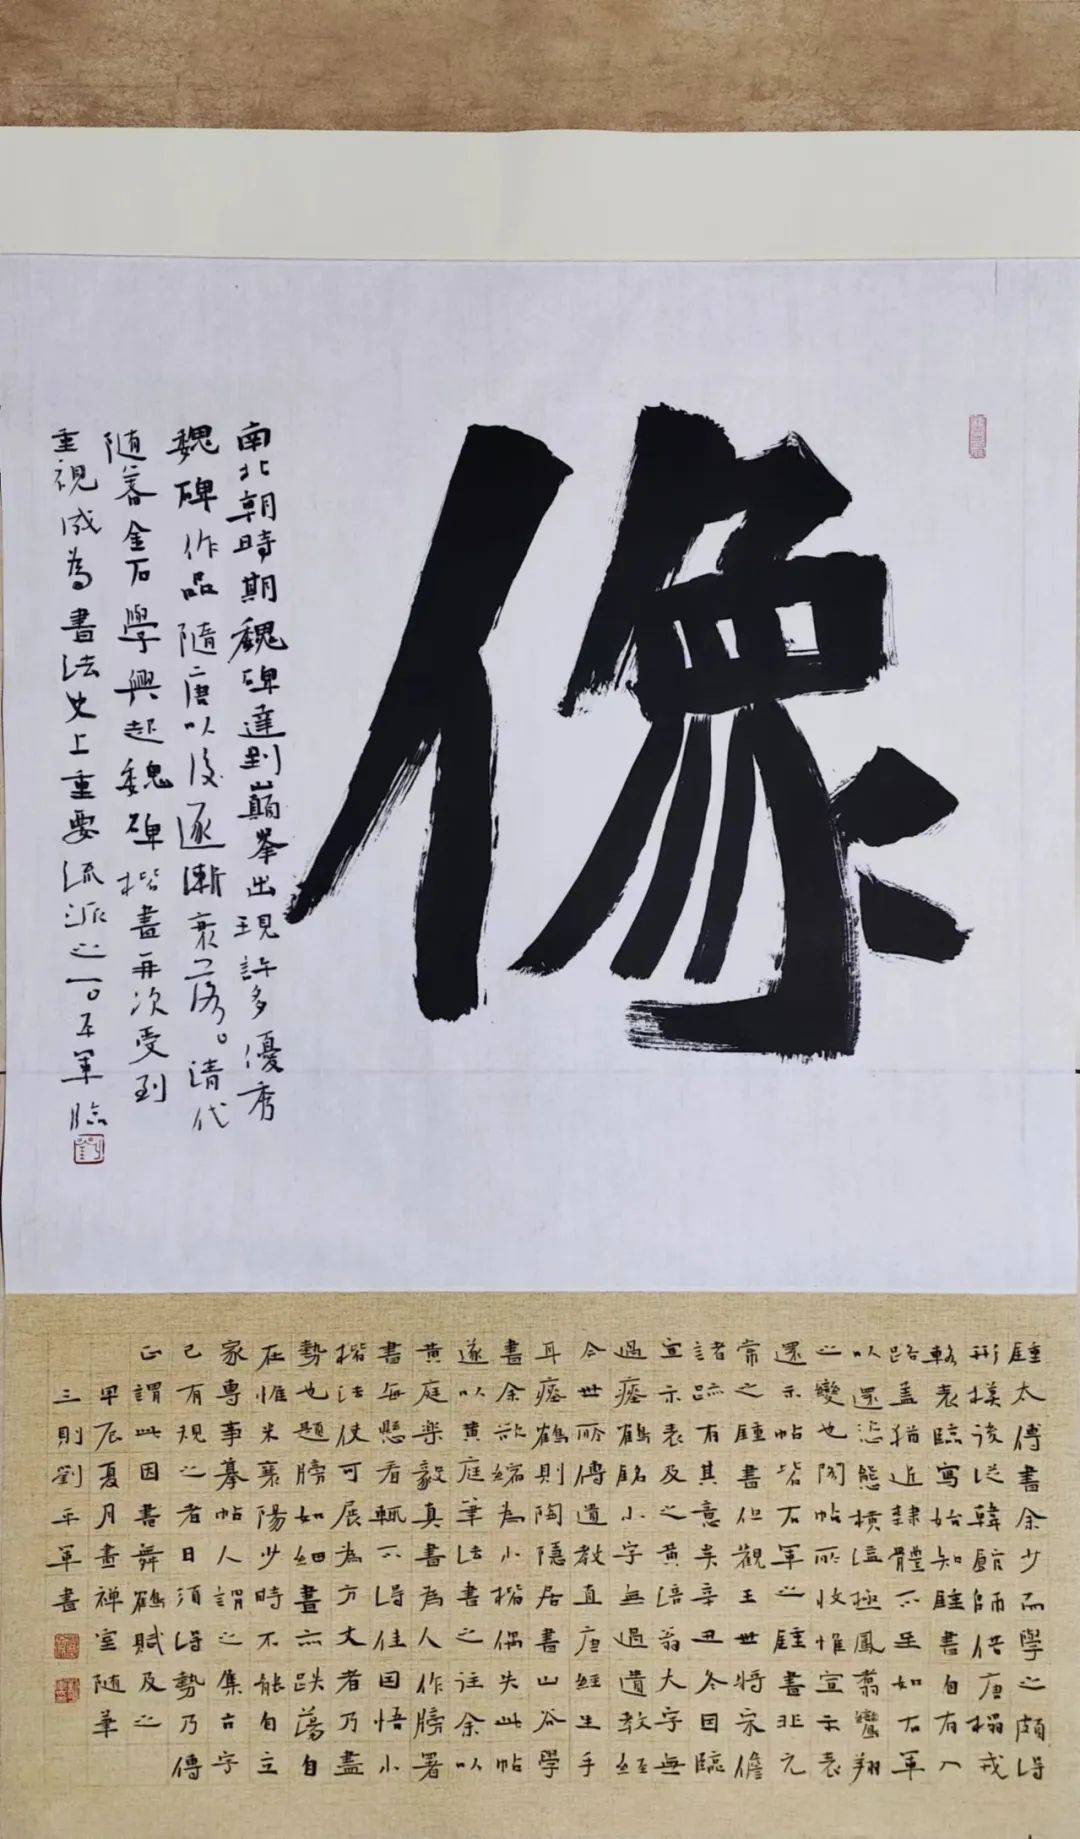 像
南北朝時期魏碑達到巔峯出現許多優秀
魏碑作品隨唐以後逐漸衰落。清代
隨着金石學興起魏碑楷書再次受到
重視成為書法史上重要流派之一。平軍臨
鍾太傅書余少而學之頗得
形模後從韓館師借唐榻戎
輅表臨寫始知鍾書自有入
路蓋猶近隸體不至如右軍
以還恣態橫溢極鳳翥鸞翔
之變也閣帖所收惟宣示表
還示帖皆右軍之鍾書非元
常之鍾書但觀王世將宋儋
諸跡有其意矣辛丑冬因臨
宣示表及之黃涪翁大字無
過瘞鶴銘小字無過遺教經
今世所傳遺教直唐經生手
耳瘞鶴則陶隱居書山谷學
書余欲縮為小楷偶失此帖
遂以黃庭筆法書之往余以
黃庭樂毅真書為人作榜署
書每懸看輒不得佳因悟小
楷法使可展為方丈者乃盡
勢也題榜如細書亦跌蕩自
在惟米襄陽少時不能自立
家專事摹帖人謂之集古字
已有規之者曰須得勢乃傳
正謂此因書舞鶴賦及之
甲辰夏月畫禪室隨筆
三則劉平軍書